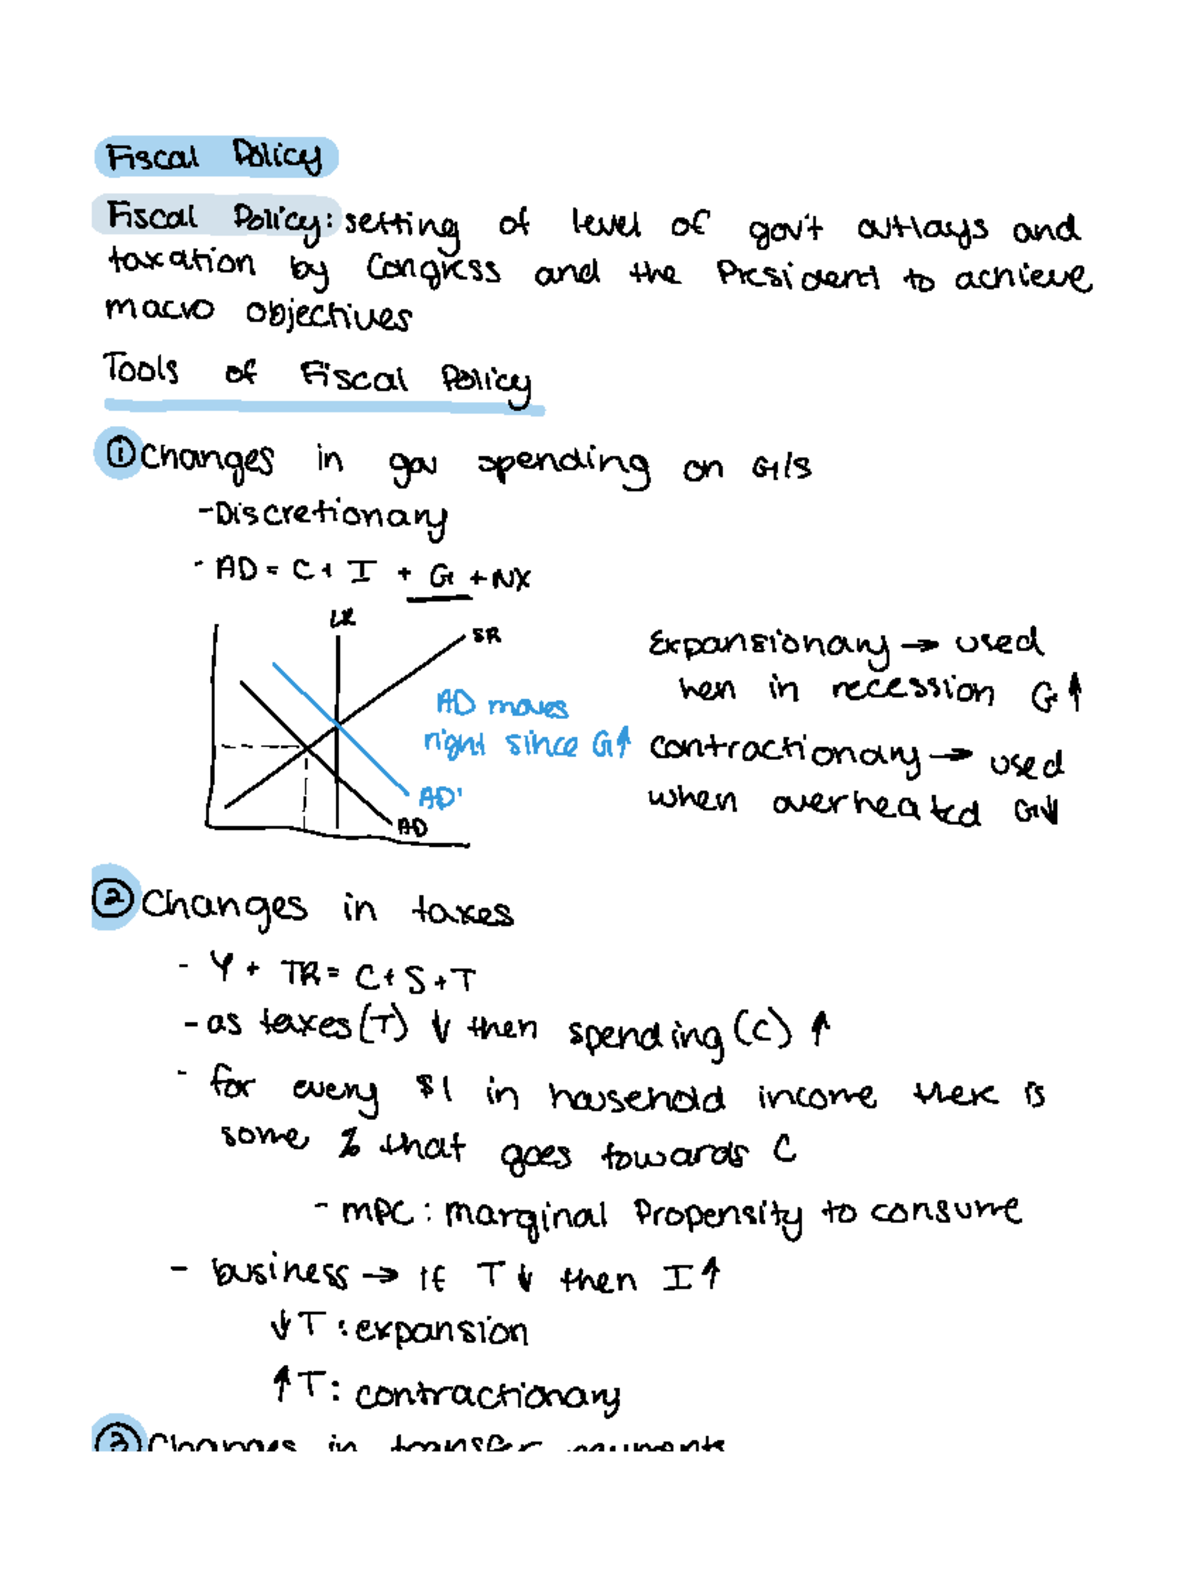 Fiscal Policy
Fiscal Policy: setting of level of gov't outlays and
taxation by Congress and the President to achieve
macro objectives
Tools of Fiscal Policy
① Changes in gov spending on G/S
- Discretionary
- AD = C + I + G + NX
LR
SR
AD moves
right since G↑
AD'
AD
Expansionary → used
hen in recession G↑
contractionary → used
when overheated G↓
② Changes in taxes
- Y + TR = C + S + T
- as taxes (T) ↓ then spending (C) ↑
- for every $1 in household income there is
some % that goes towards C
- MPC: marginal Propensity to consume
- business → If T↓ then I↑
↓T: expansion
↑T: contractionary
③ Changes in transfer payments